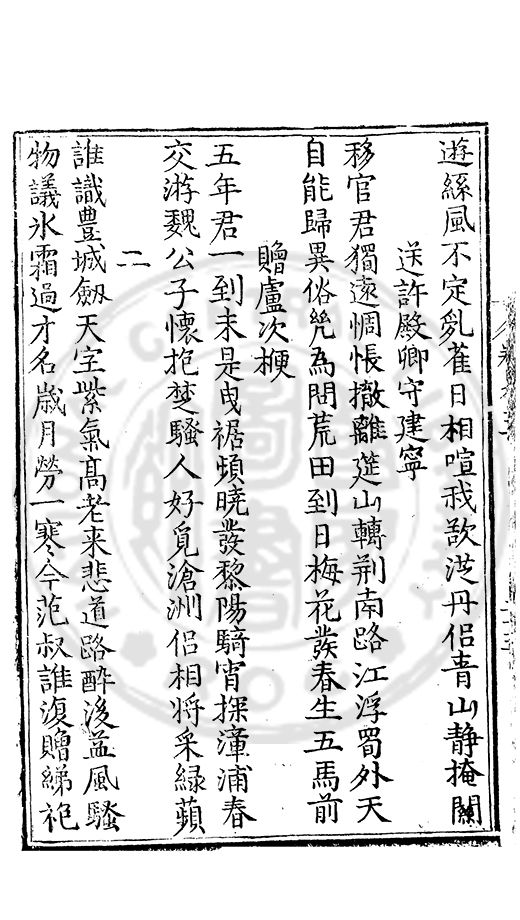 遊絲風不定亂雀日相喧我欲從丹侶青山靜掩關
送許殿卿守建寧
移官君獨遠惆悵撤離筵山轉荊南路江浮蜀外天
自能歸異俗幾為問荒田到日梅花發春生五馬前
贈盧次楩
五年君一到未是曳裾頻曉發黎陽騎宵探漳浦春
交游魏公子懷抱楚騷人好覓滄洲侶相將采綠蘋
二
誰識豊城劒天字紫氣髙老来悲道路醉後益風騷
物議氷霜過才名歲月勞一寒今范叔誰復贈綈袍